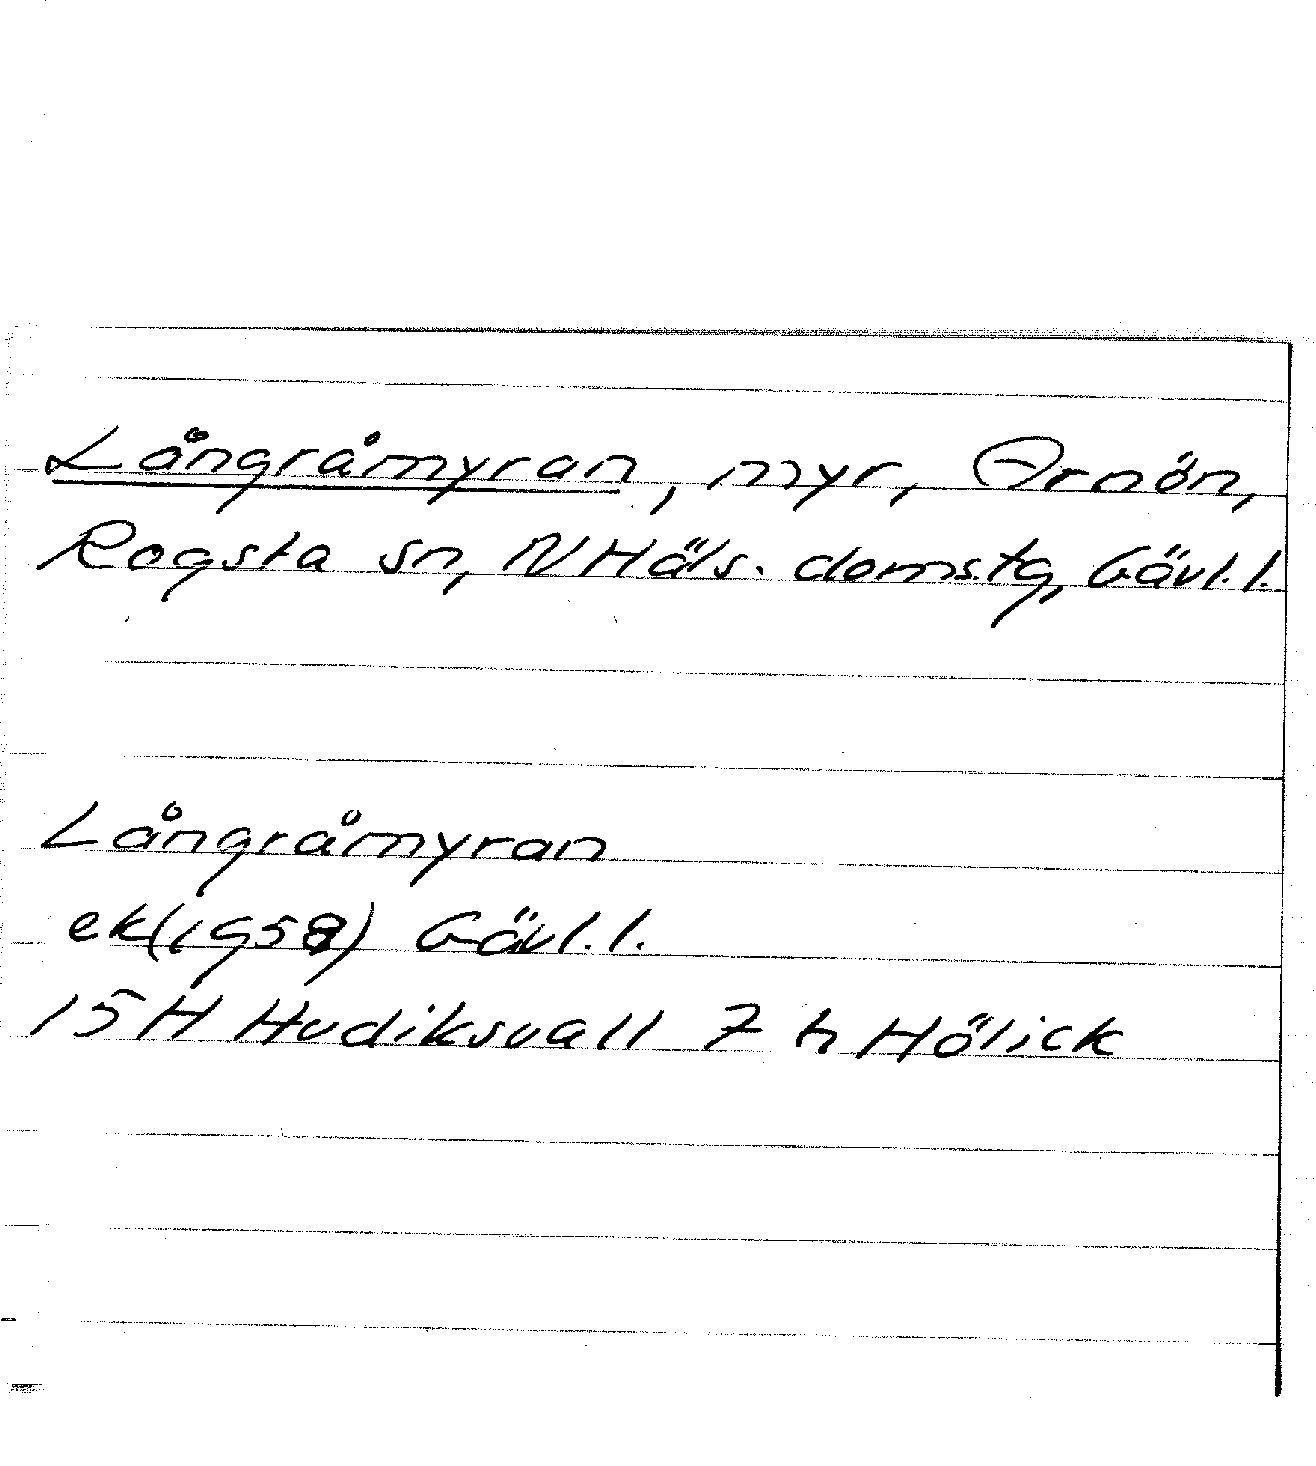 Långråmyran, myr, Arnön,
Rogsta sn, N Häls. doms.tg, Gävl.l.
Långråmyran
ek(1958) Gävl.l.
15H Hudiksvall 7 h Hölick